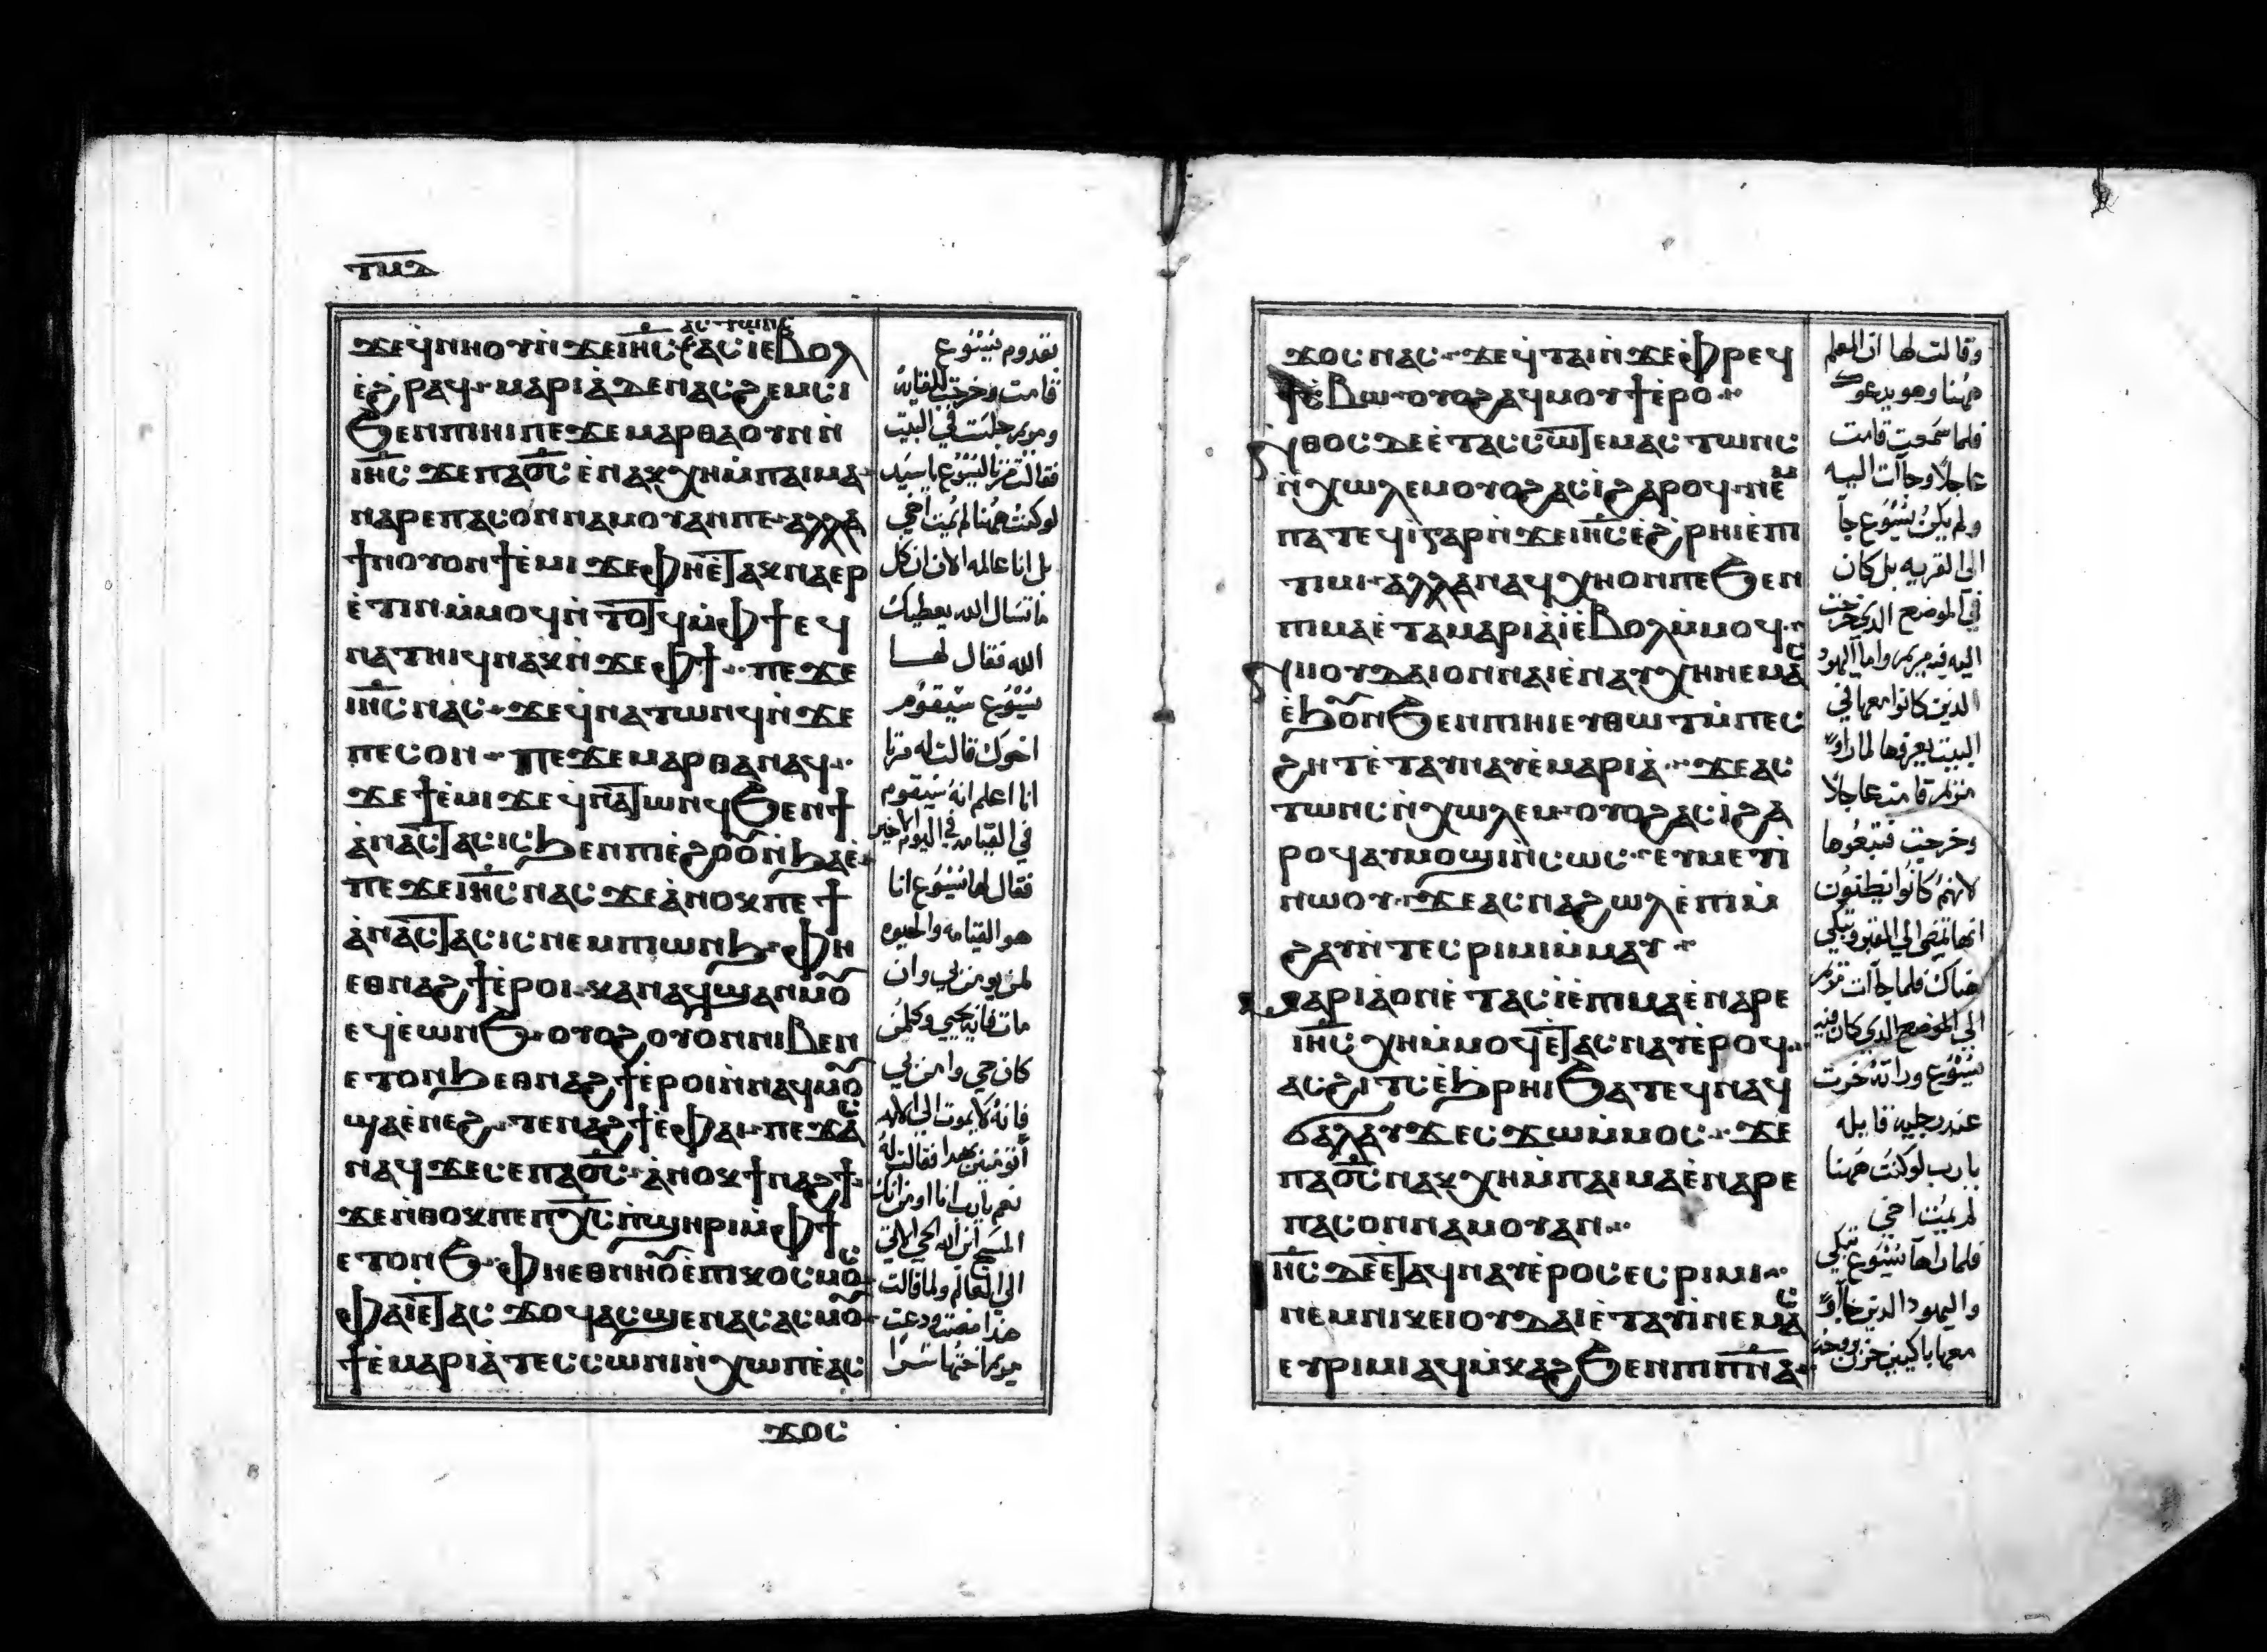 ⲧⲙⲇ
ⲁⲥⲧⲱⲛⲥ
ϫⲉϥⲛⲏⲟⲩⲛ̀ϫⲉⲓⲏ̅ⲥ̅ⲁⲥⲓ̀ⲉⲃⲟⲗ
ⲉ̀ϩⲣⲁϥ·ⲙⲁⲣⲓⲁ̀ⲇⲉⲛⲁⲥϩⲉⲙⲥⲓ
ϧⲉⲛⲡⲓⲏⲓⲡⲉϫⲉⲙⲁⲣⲑⲁⲟⲩⲛⲛ̀
ⲓⲏ̅ⲥ̅ϫⲉⲡⲁⲟ̅ⲥ̅ⲉ̀ⲛⲁⲕⲭⲏⲙ̀ⲡⲁⲓⲙⲁ·
ⲛⲁⲣⲉⲡⲁⲥⲟⲛⲛⲁⲙⲟⲩⲁⲛⲡⲉ·ⲁⲗⲗⲁ
ϯⲛⲟⲩⲟⲛϯⲉ̀ⲙⲓϫⲉⲫⲏⲉ̀ⲧⲁⲕⲛⲁⲉⲣ
ⲉ̀ⲧⲓⲛⲙ̀ⲙⲟϥⲛ̀ⲧⲟⲧϥⲙ̀ⲫϯⲉϥ
ⲛⲁⲧⲏⲓϥⲛⲁⲕⲛ̀ϫⲉⲫϯ··ⲡⲉϫⲉ
ⲓⲏ̅ⲥ̅ⲛⲁⲥ·ϫⲉϥⲛⲁⲧⲱⲛϥⲛ̀ϫⲉ
ⲡⲉⲥⲟⲛ··ⲡⲉϫⲉⲙⲁⲣⲑⲁⲛⲁϥ··
ϫⲉϯⲉ̀ⲙⲓϫⲉϥⲛⲁⲧⲱⲛϥϧⲉⲛϯ
ⲁ̀ⲛⲁⲥⲧⲁⲥⲓⲥϧⲉⲛⲡⲓⲉ̀ϩⲟⲟⲩⲛ̀ϧⲁⲉ̀·
ⲡⲉϫⲉⲓⲏ̅ⲥ̅ⲛⲁⲥϫⲉⲁ̀ⲛⲟⲕⲡⲉϯ
ⲁ̀ⲛⲁⲥⲧⲁⲥⲓⲥⲛⲉⲙⲡⲓⲱⲛϧ·ⲫⲏ
ⲉⲑⲛⲁϩϯⲉ̀ⲣⲟⲓ·ⲕⲁⲛⲁϥϣⲁⲛⲙⲟⲩ
ⲉϥⲉ̀ⲱⲛϧ·ⲟⲩⲟϩⲟⲩⲟⲛⲛⲓⲃⲉⲛ
ⲉⲧⲟⲛϧⲉⲑⲛⲁϩϯⲉ̀ⲣⲟⲓⲛ̀ⲛⲁϥⲙⲟⲩ
ϣⲁⲉ̀ⲛⲉϩ·ⲧⲉⲛⲁϩϯⲉ̀ⲫⲁⲓ·ⲡⲉϫⲁⲥ
ⲛⲁϥϫⲉⲥⲉⲡⲁⲟ̅ⲥ̅·ⲁ̀ⲛⲟⲕϯⲛⲁϩϯ·
ϫⲉⲛ̀ⲑⲟⲕⲡⲉⲡⲭ̅ⲥ̅ⲡ̀ϣⲏⲣⲓⲙ̀ⲫϯ
ⲉⲧⲟⲛϧ·ⲫⲏⲉⲑⲛⲏⲟⲩⲉ̀ⲡⲓⲕⲟⲥⲙⲟⲥ·
ⲫⲁⲓⲉ̀ⲧⲁⲥϫⲟϥⲁⲥϣⲉⲛⲁⲥⲁⲥⲙⲟⲩ·
ϯⲉ̀ⲙⲁⲣⲓⲁ̀ⲧⲉⲥⲥⲱⲛⲓⲛ̀ⲭⲱⲡⲉ̀ⲁⲥ
ϫⲟⲥ
بقدوم يسوع
قامت وخرجت للقايه
ومريم جلست في البيت
فقالت مرتا ليسوع يا سيد
لو كنت ههنا لم يمت اخي
بل انا عالمه الان ان كل
ما تسال الله يعطيك
الله فقال لها
يسوع سيقوم
اخوك قالت له مرتا
انا اعلم انه سيقوم
في القيامه في اليوم الاخير
فقال لها يسوع انا
هو القيامه والحيوه
لمن يومن بي وان
مات فانه يحيي وكلمن
كان حي وامن بي
فانه لا يموت الي الابد
أتومنين بهدا فقالت له
نعم يارب انا اومن انك
المسيح ابن الله الحي الاتي
الي العالم ولما قالت
هذا مضت ودعت
مريم اختها سرا
ϫⲟⲥⲛⲁⲥ·ϫⲉϥⲧⲁⲓⲛ̀ϫⲉⲫⲣⲉϥ
ϯⲥ̀ⲃⲱ·ⲟⲩⲟϩⲁϥⲙⲟⲩϯⲉ̀ⲣⲟ··
ⲛ̀ⲑⲟⲥⲇⲉⲉ̀ⲧⲁⲥⲥⲱⲧⲉⲙⲁⲥⲧⲱⲛⲥ
ⲛ̀ⲭⲱⲗⲉⲙⲟⲩⲟϩⲁⲥⲓ̀ϩⲁⲣⲟϥ·ⲛⲉ̀
ⲙ̀ⲡⲁⲧⲉϥⲓ̀ⲅⲁⲣⲛ̀ϫⲉⲓⲏ̅ⲥ̅ⲉ̀ϩⲣⲏⲓⲉ̀ⲡⲓ
ϯⲙⲓ·ⲁⲗⲗⲁⲛⲁϥⲭⲏⲟⲛⲡⲉϧⲉⲛ
ⲡⲓⲙⲁⲉ̀ⲧⲁⲙⲁⲣⲓⲁ̀ⲓ̀ⲉ̀ⲃⲟⲗⲙ̀ⲙⲟϥ··
ⲛⲓⲓⲟⲩⲇⲁⲓⲟⲛⲛⲁⲓⲉ̀ⲛⲁⲩⲭⲏⲛⲉⲙⲁⲥ
ⲉ̀ϧⲟⲩⲛϧⲉⲛⲡⲓⲏⲓⲉⲩⲑⲱⲧⲙ̀ⲡⲉⲥ
ϩⲏⲧⲉ̀ⲧⲁⲩⲛⲁⲩⲉ̀ⲙⲁⲣⲓⲁ̀··ϫⲉⲁⲥ
ⲧⲱⲛⲥⲛ̀ⲭⲱⲗⲉⲙ·ⲟⲩⲟϩⲁⲥⲓ̀ϩⲁ
ⲣⲟϥⲁⲩⲙⲟϣⲓⲛ̀ⲥⲱⲥ·ⲉⲩⲙⲉⲩⲓ̀
ⲛⲱⲟⲩ·ϫⲉⲁⲥⲛⲁϩⲱⲗⲉ̀ⲡⲓⲙ̀
ϩⲁⲩⲛ̀ⲧⲉⲥⲣⲓⲙⲓⲙ̀ⲙⲁⲩ··
ⲙⲁⲣⲓⲁ̀ⲟⲛⲉ̀ⲧⲁⲥⲓ̀ⲉ̀ⲡⲓⲙⲁⲉ̀ⲛⲁⲣⲉ
ⲓⲏ̅ⲥ̅ⲭⲏⲙ̀ⲙⲟϥⲉ̀ⲧⲁⲥⲛⲁⲩⲉ̀ⲣⲟϥ··
ⲁⲥϩⲓⲧⲥⲉ̀ϧⲣⲏⲓϧⲁⲧⲉⲛⲛⲁϥ
ϭⲁⲗⲁⲩϫⲉⲥϫⲱⲙ̀ⲙⲟⲥ··ϫⲉ
ⲡⲁⲟ̅ⲥ̅ⲛⲁⲕⲭⲏⲙ̀ⲡⲁⲓⲙⲁⲉ̀ⲛⲁⲣⲉ
ⲡⲁⲥⲟⲛⲛⲁⲙⲟⲩⲁⲛ··
ⲓⲏ̅ⲥ̅ⲇⲉⲉ̀ⲧⲁϥⲛⲁⲩⲉ̀ⲣⲟⲥⲉⲥⲣⲓⲙⲓ··
ⲛⲉⲙⲛⲓⲕⲉⲓⲟⲩⲇⲁⲓⲉ̀ⲧⲁⲩⲓ̀ⲛⲉⲙⲁⲥ
ⲉⲩⲣⲓⲙⲓⲁϥⲙ̀ⲕⲁϩϧⲉⲛⲡⲓⲡ̅ⲛ̅ⲁ̅·
وقالت لها ان المعلم
ههنا وهو يدعوك
فلما سمعت قامت
عاجلا وجاات اليه
ولم يكن يسوع جا
الي القريه بل كان
في الموضع الذي خرجت
اليه فيه مريم واما اليهود
الذين كانوا معها في
البيت يعزوها لما راوا
مريم قامت عاجلا
وخرجت فتبعوها
لانهم كانوا يظنون
انها تمضي الي القبر وتبكي
هناك فلما جاات مريم
الي الموضع الذي كان فيه
يسوع وراته خرت
عند رجليه قايله
يارب لو كنت ههنا
لم يمت اخي
فلما راها يسوع تبكي
واليهود الذين جاوا
معها باكيين حزن بروحه